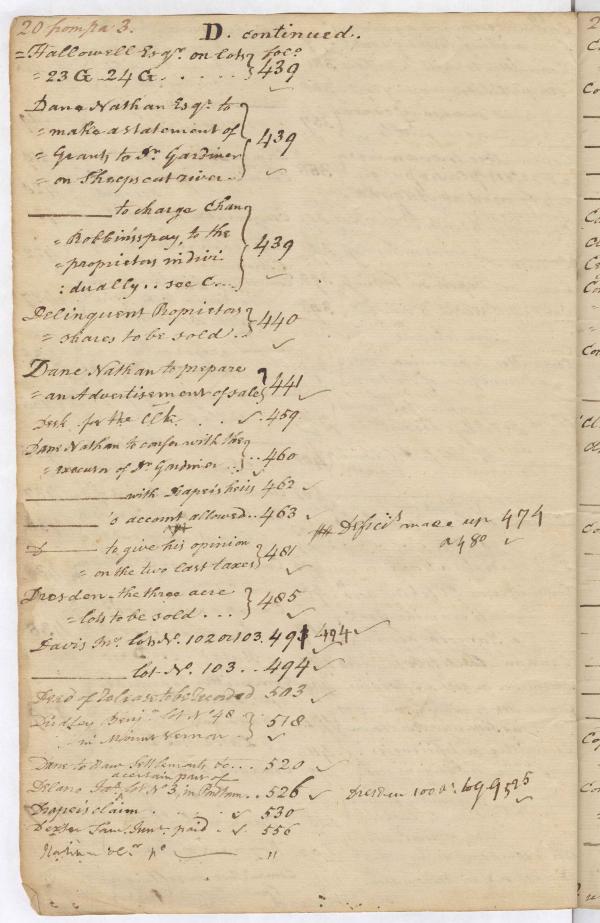 20 from pa 3.
D. continued.
= Hallowell Esqr. on lots } folo
= 23 G 24 G. . . . . } 439
Dane Nathan Esqr. to
= make a statement of
= Grants to Dr. Gardiner } 439
= on Sheepscut river.
——— to charge Chan
= Robbins's pay, to the
= proprietors indivi } 439
: dually .. see C...
Delinquent Proprietors
= shares to be sold .. } 440
Dane Nathan to prepare
= an Advertisement of sale } 441
Desk for the Clk. . . 459
Dane Nathan to confer with the
= executor of Dr. Gardiner .. } .. 460
——— with Draper's heirs 462
——— 's account allowed .. 463
## Deficits made up 474
480
D——— to give his opinion
= on the two last taxes } 481
Dresden - the three acre
= lots to be sold ... } 485
Davis Jno. lot No. 102 or 103. 493 494
——— lot No. 103 .. 494
Deed of Release to be recorded 503
Dudley Benjn. lot No 48 } 518
in Mount Vernon
Dane to draw Settlements &c... 520
a certain part of
Delano lot No 3, in .. 526
Dresden 1000 a. lot 525
Draper's claim . . . 530
Dexter Saml. Junr. paid . 556
Do "